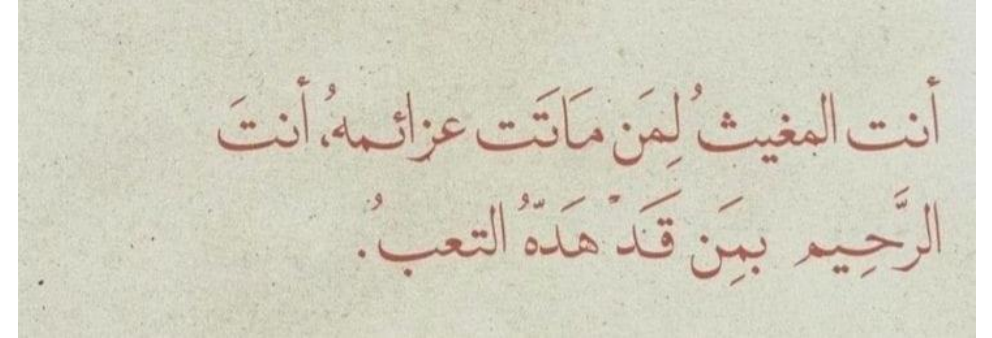 أنت المغيثُ لِمَن مَاتَت عزائمهُ، أنتَ
الرَّحِيم بمِن قَدْ هَدّهُ التعبُ.